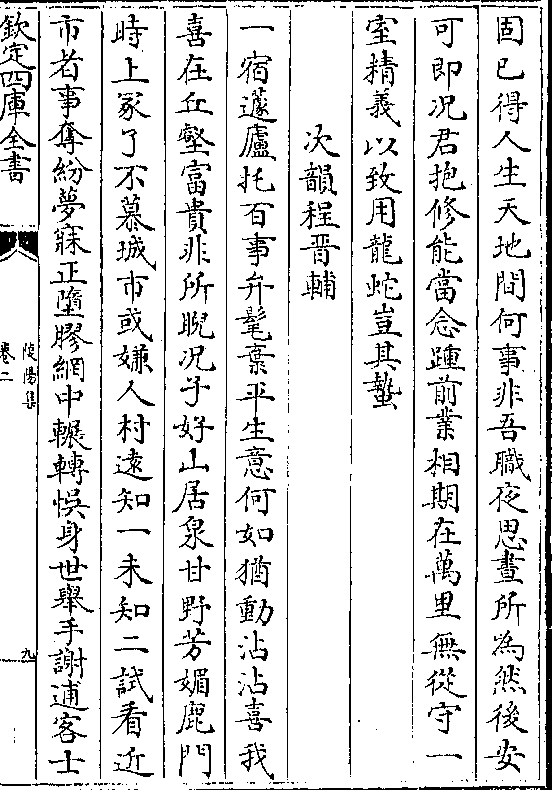 固已得人生天地間何事非吾職夜思晝所為然後安
可即况君抱修能當念踵前業相期在萬里無從守一
室精義以致用龍蛇豈其蟄
次韻程晋輔
一宿蘧廬托百事弁髦棄平生意何如猶動沾沾喜我
喜在丘壑富貴非所睨况子好山居泉甘野芳媚鹿門
時上冢了不慕城市或嫌人村遠知一未知二試看近
市者事奪紛夢寐正墮膠網中輾轉悞身世舉手謝逋客士
欽定四庫全書
陵陽集
卷二
九